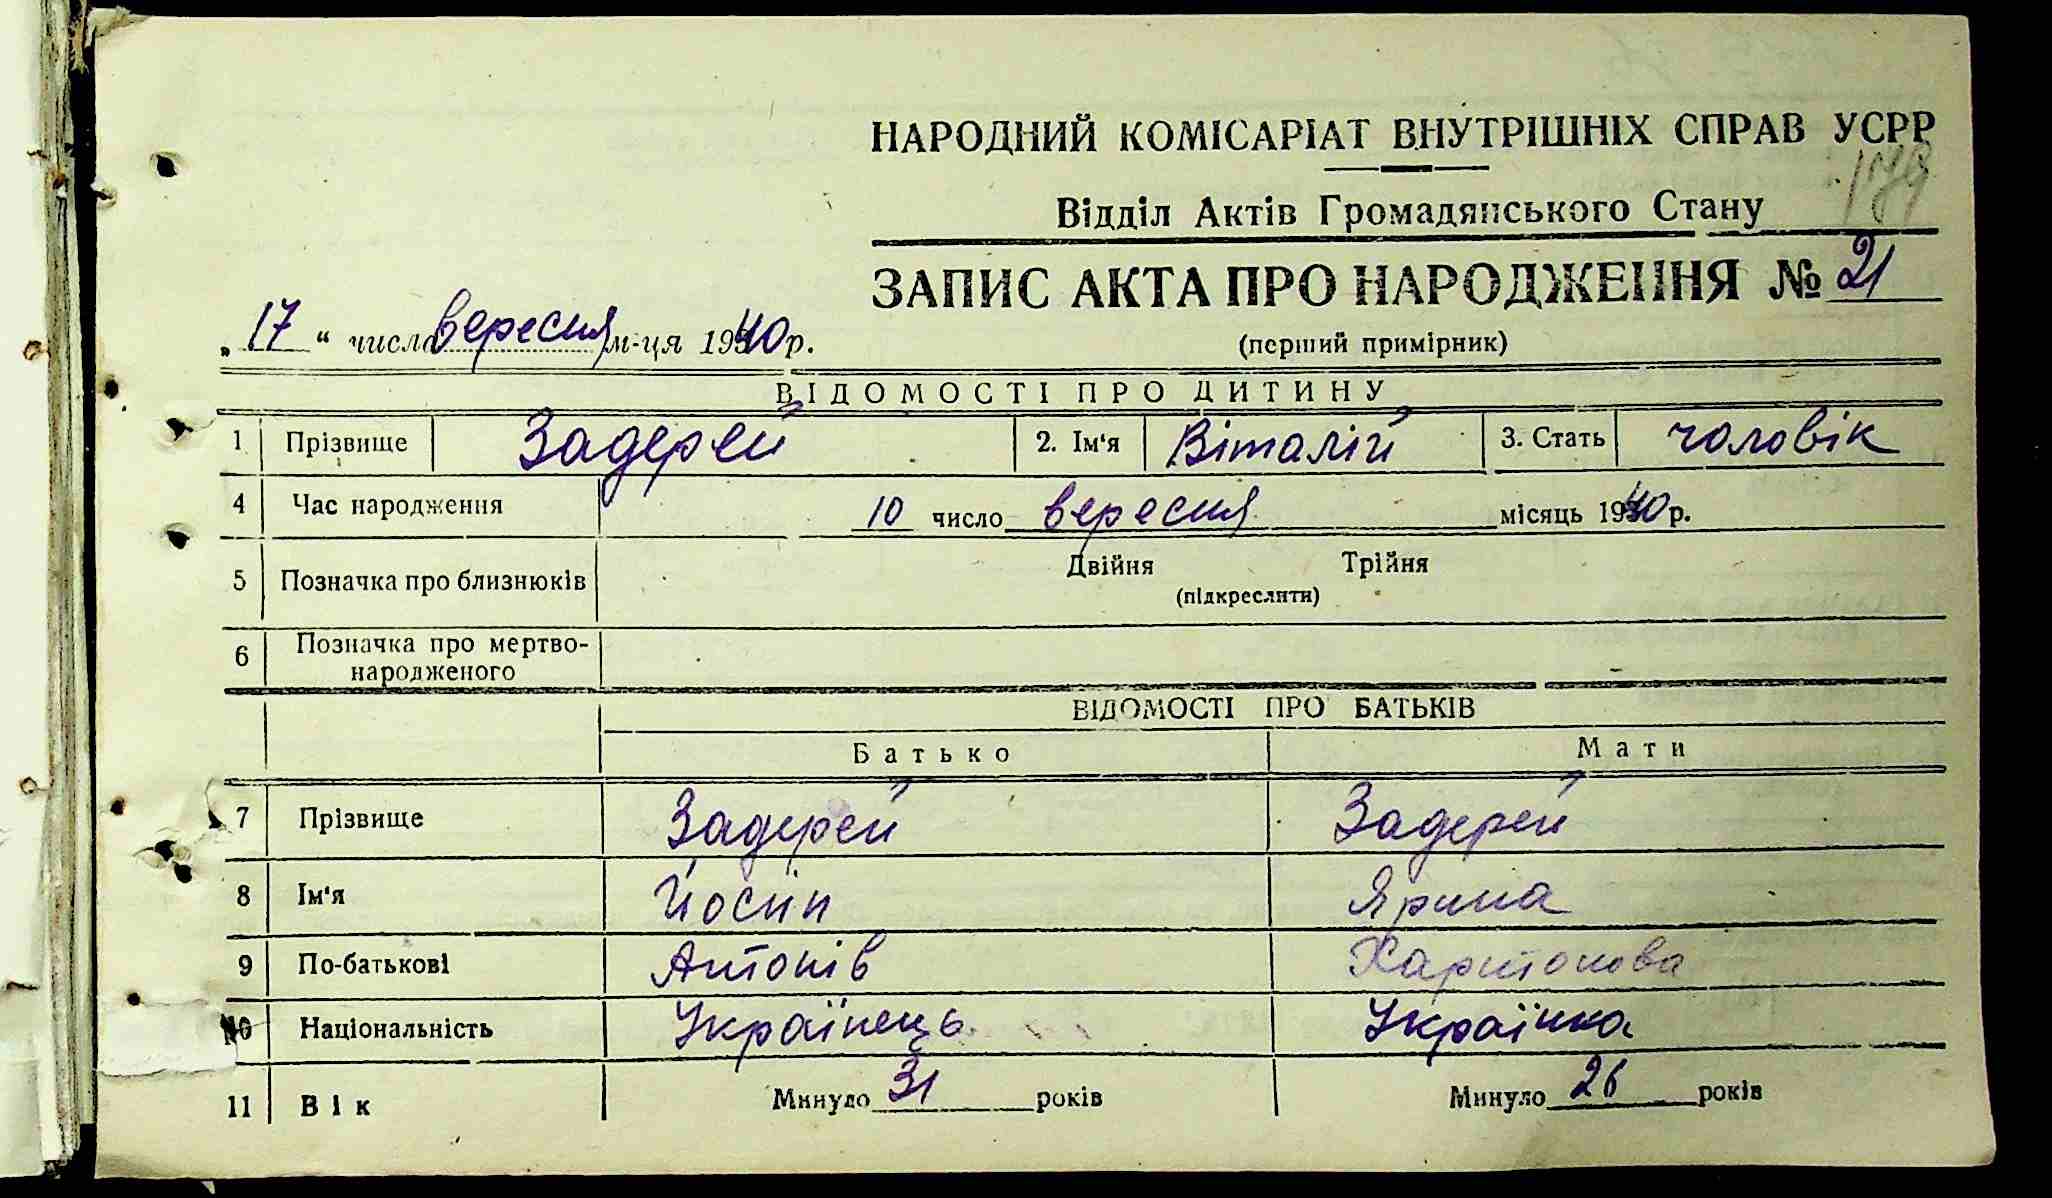 НАРОДНИЙ КОМІСАРІАТ ВНУТРІШНІХ СПРАВ УСРР
179
Відділ Актів Громадянського Стану
ЗАПИС АКТА ПРО НАРОДЖЕННЯ № 21
„ 17 “ числа вересня м-ця 1940 р.
(перший примірник)
ВІДОМОСТІ ПРО ДИТИНУ
1 Прізвище Задерей 2. Ім‘я Віталій 3. Стать чоловік
4 Час народження 10 число вересня місяць 1940 р.
5 Позначка про близнюків Двійня Трійня
(підкреслити)
6 Позначка про мертво-
народженого
ВІДОМОСТІ ПРО БАТЬКІВ
Батько Мати
7 Прізвище Задерей Задерей
8 Ім‘я Йосип Ярина
9 По-батькові Антонів Харитонова
10 Національність Українець Українка
11 Вік Минуло 31 років Минуло 26 років